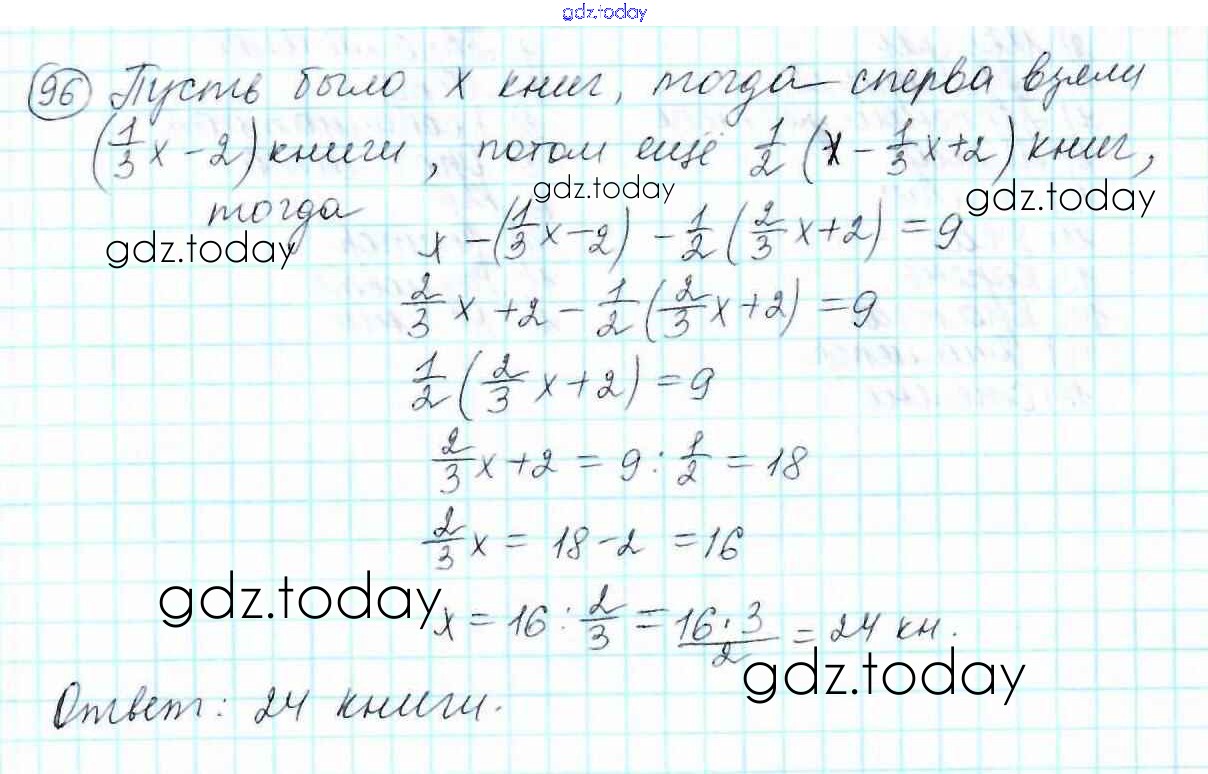 gdz.today
96 Пусть было x книг, тогда сперва взяли
(1/3 x - 2) книги, потом ещё 1/2 (x - 1/3 x + 2) книг,
gdz.today
gdz.today
тогда
gdz.today
x - (1/3 x - 2) - 1/2 (2/3 x + 2) = 9
2/3 x + 2 - 1/2 (2/3 x + 2) = 9
1/2 (2/3 x + 2) = 9
2/3 x + 2 = 9 : 1/2 = 18
2/3 x = 18 - 2 = 16
gdz.today
x = 16 : 2/3 = 16 · 3/2 = 24 кн.
gdz.today
Ответ: 24 книги.